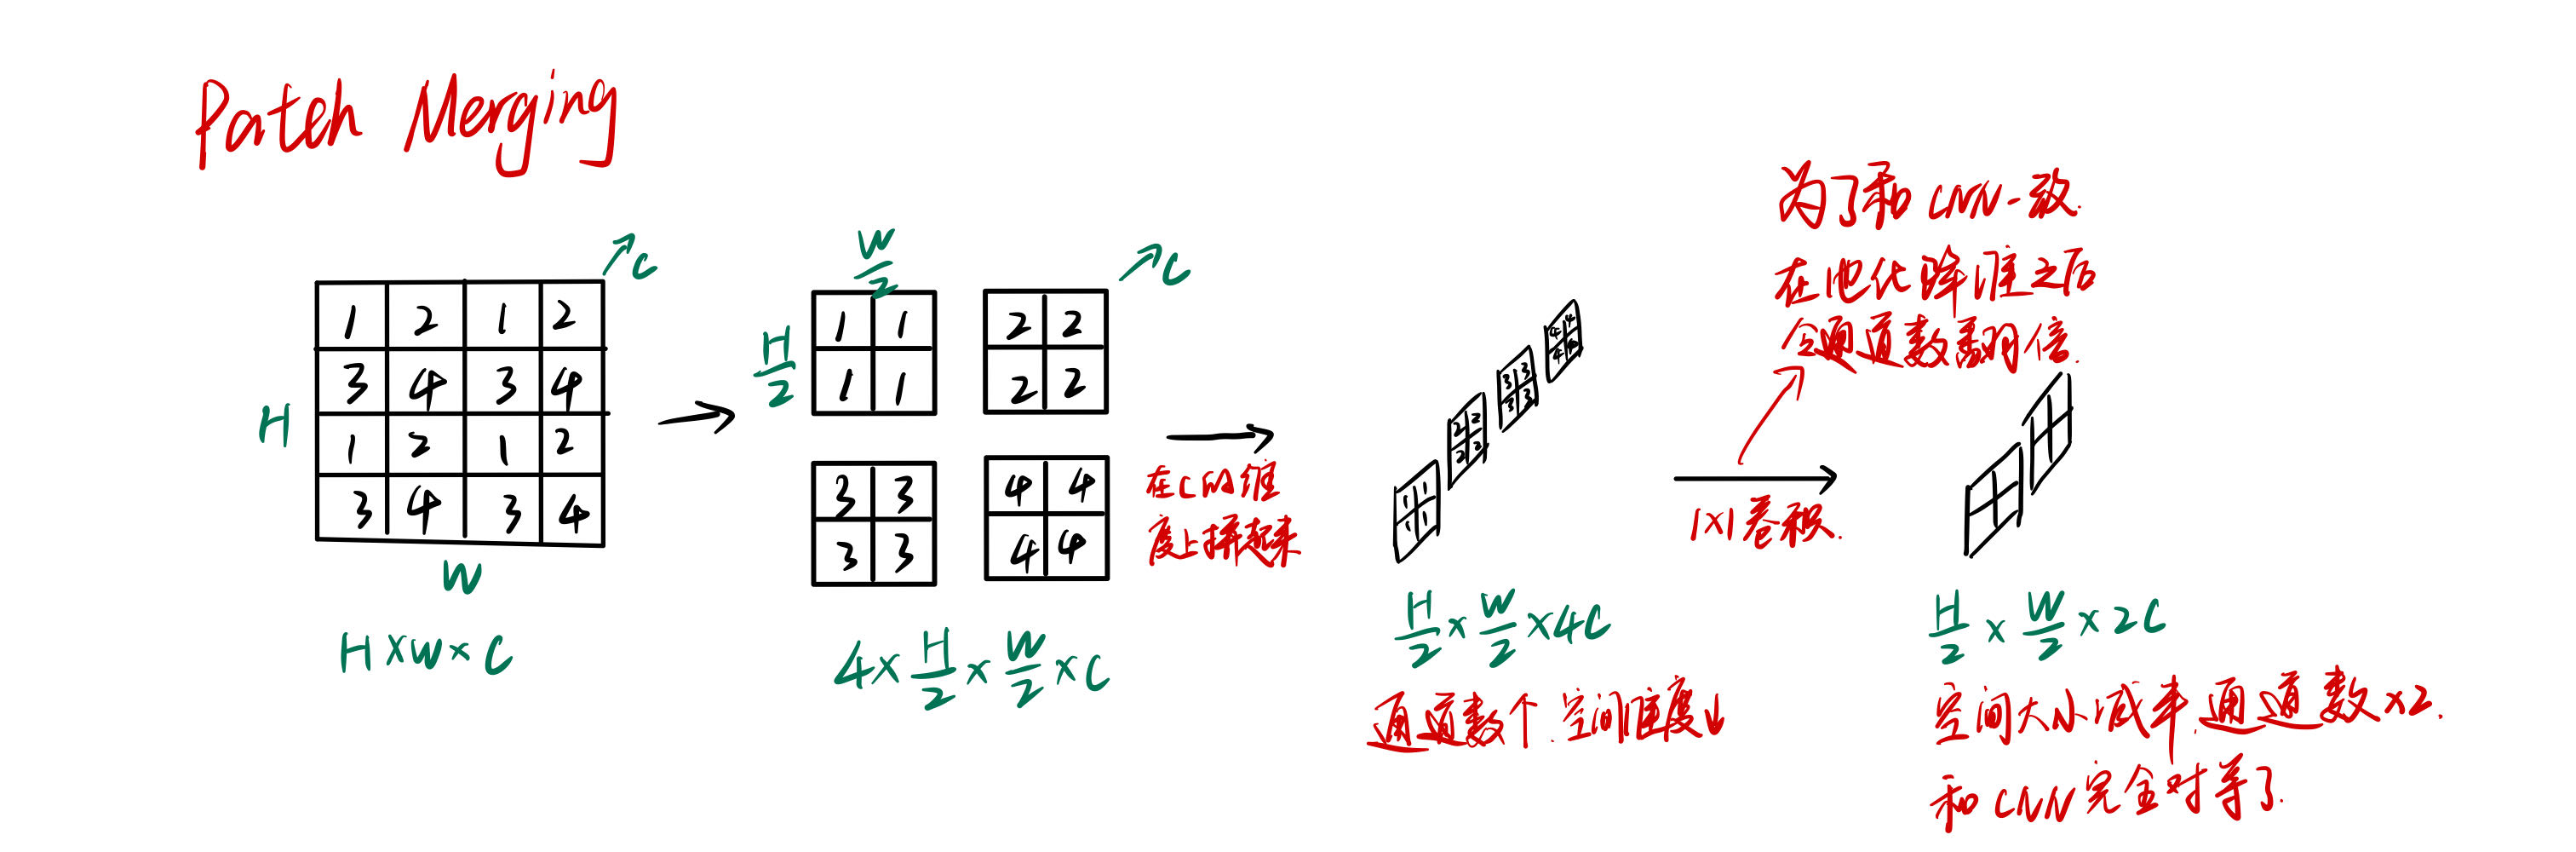 Patch Merging
C
1 2 1 2
3 4 3 4
1 2 1 2
3 4 3 4
H
W
H×W×C
W/2
H/2
C
1 1
1 1
2 2
2 2
3 3
3 3
4 4
4 4
4×H/2×W/2×C
在C的维
度上拼起来
1 1
1 1
2 2
2 2
3 3
3 3
4 4
4 4
H/2×W/2×4C
通道数↑.空间维度↓
1×1卷积.
为了和CNN一致.
在池化降维之后
令通道数翻倍.
H/2×W/2×2C
空间大小减半,通道数×2.
和CNN完全对等了.